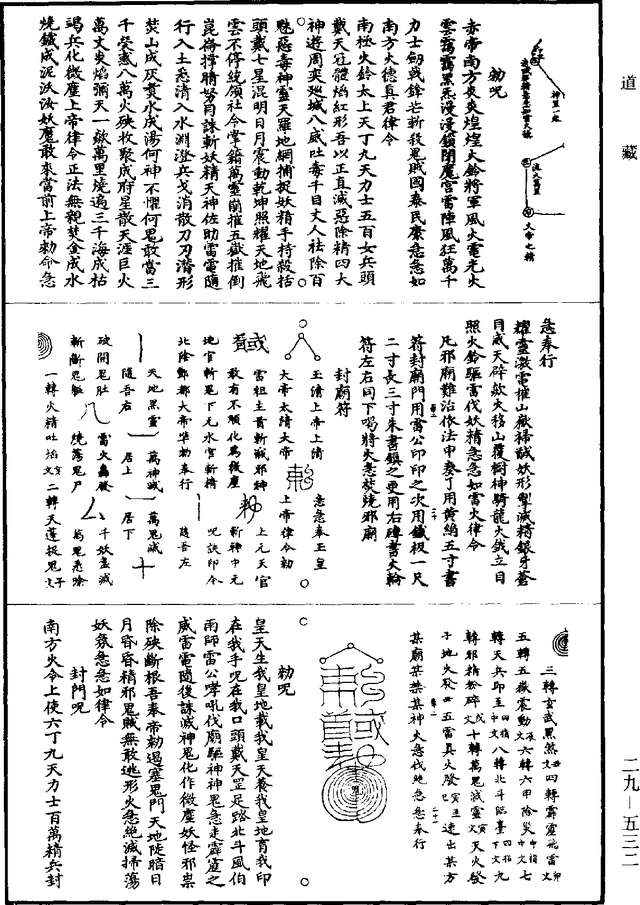 道藏
神墨一啟
流火萬里
大帝之精
勑呪
赤帝南方炎炎煌煌火鈴將軍風火電光火
雲霧霧黑炁漫漫鎖閉魔宮雷陣風狂萬千
力士劒戟鋒芒斬殺鬼賊國泰民康急急如
南方火德真君律令
南極火鈴太上天丁九天力士五百女兵頭
戴天冠體焰紅形吾以正直滅惡除精四大
神遊周奕廵城八威吐毒千目丈人社除百
魅惡毒神靈天羅地網捕捉妖精手持殺括
頭戴七星混明日月震動乾坤照耀天地飛
雲不停統領社令掌籍萬靈崩摧五嶽推倒
崑崙撑睛努目誅斬妖精天神佐助雷電隨
行入土惡清入水淵澄兵戈消散刀刃潛形
焚山成灰煑水成湯何神不懼何鬼敢當三
千熒惑八萬火殃收聚成府星散天涯巨火
萬丈炎焰彌天一歘萬里燒遍三千海成枯
竭兵化微塵上帝律令正法無親焚金成水
燒鐵成泥沃汝妖魔敢來當前上帝勑命急
急奉行
耀靈激電摧山嶽掃馘妖形掣滅精銀牙蒼
目威天辟歘火移山覆樹神騎龍火鉞立目
照火鈴驅雷伐妖精急急如雷火律令
凡邪廟難治依法申奏了用黃絹五寸書
符封廟門用雷公印印之次用鐵板一尺
二寸長三寸朱書鎮之更用右禆書火輪
符左右同下喝將火急焚燒邪廟
封廟符
玉清上帝上清
大帝太清大帝
急急奉玉皇
上帝律令勑
當祖主首斬馘邪神
敢有不順化爲微塵
上元天官
斬神中元
地官斬鬼下元水官斬精
呪訣印令
北陰酆都大帝準勑奉行
隨吾左
天地黑靈
萬神滅
萬鬼滅
隨吾右
居上
居下
破開鬼肚
雷火轟發
千妖盡滅
斬斷鬼軀
燒蕩鬼尸
萬鬼悉除
一轉火精吐焰文寅
二轉天蓬捉鬼文子
三轉玄武黑煞文丑
四轉霹靂飛雷文卯
五轉五嶽震動文辰
六轉六甲除災中指中文
七轉天兵印至四指中文
八轉北斗臨臺四指下文
九轉邪精粉碎戊文
十轉萬鬼滅靈寅文
天火發子
地火發丑
五雷真火發寅至巳
速出某方
某廟某禁某神火急伐絶急急奉行
勑呪
皇天生我皇地載我皇天養我皇地育我印
在我手呪在我口頭戴天罡足踏北斗風伯
雨師雷公哮吼伐廟驅神神鬼急走霹靂之
威雷電隨後誅滅神鬼化作微塵妖怪邪祟
除殃斷根吾奉帝勑遏塞鬼門天地陡暗日
月昏昏精邪鬼賊無敢逃形火急絶滅掃蕩
妖氛急急如律令
封門呪
南方火令上使六丁九天力士百萬精兵封
二九—五三二